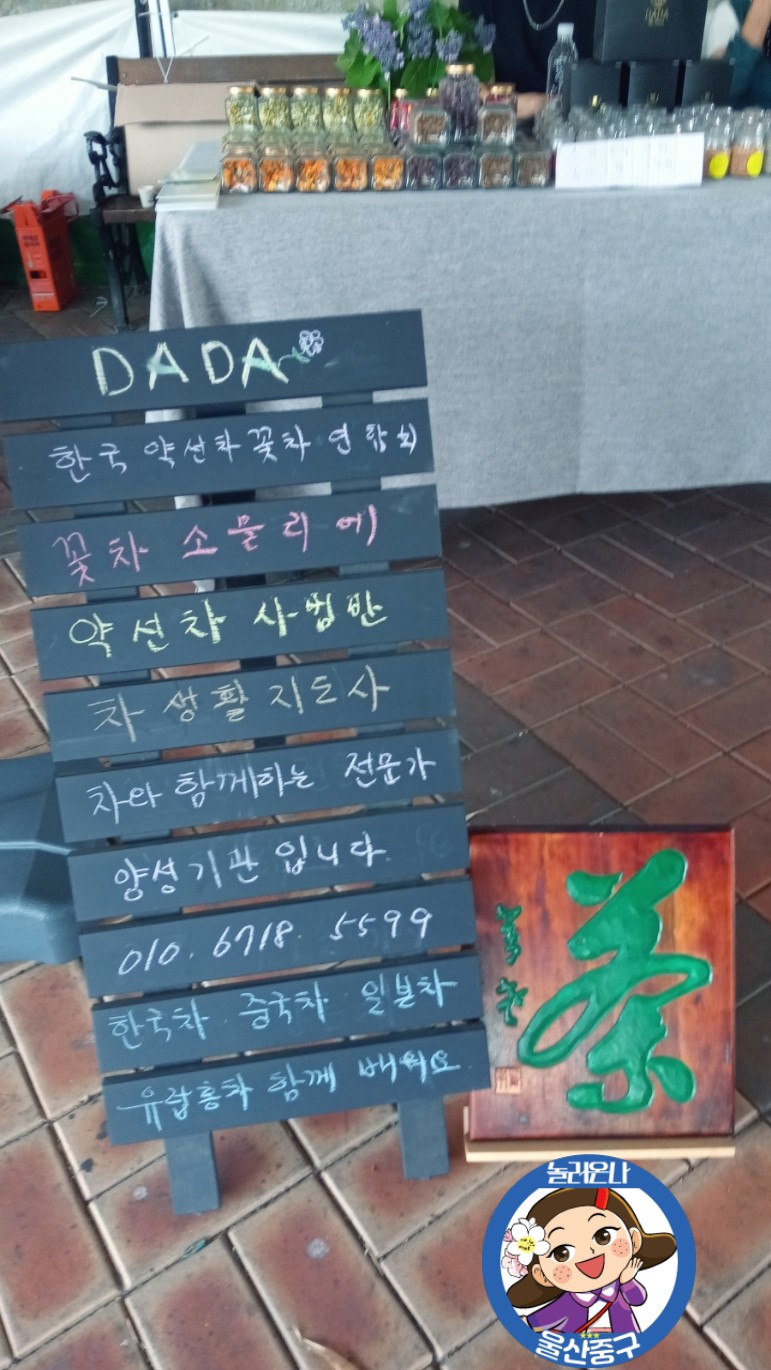 DADA
한국 약선차 꽃차 연합회
꽃차 소믈리에
약선차 사범반
차 생활 지도사
차와 함께하는 전문가
양성기관 입니다
010. 6718. 5599
한국차 중국차 일본차
유럽홍차 함께 배워요
茶
놀러온나
울산중구